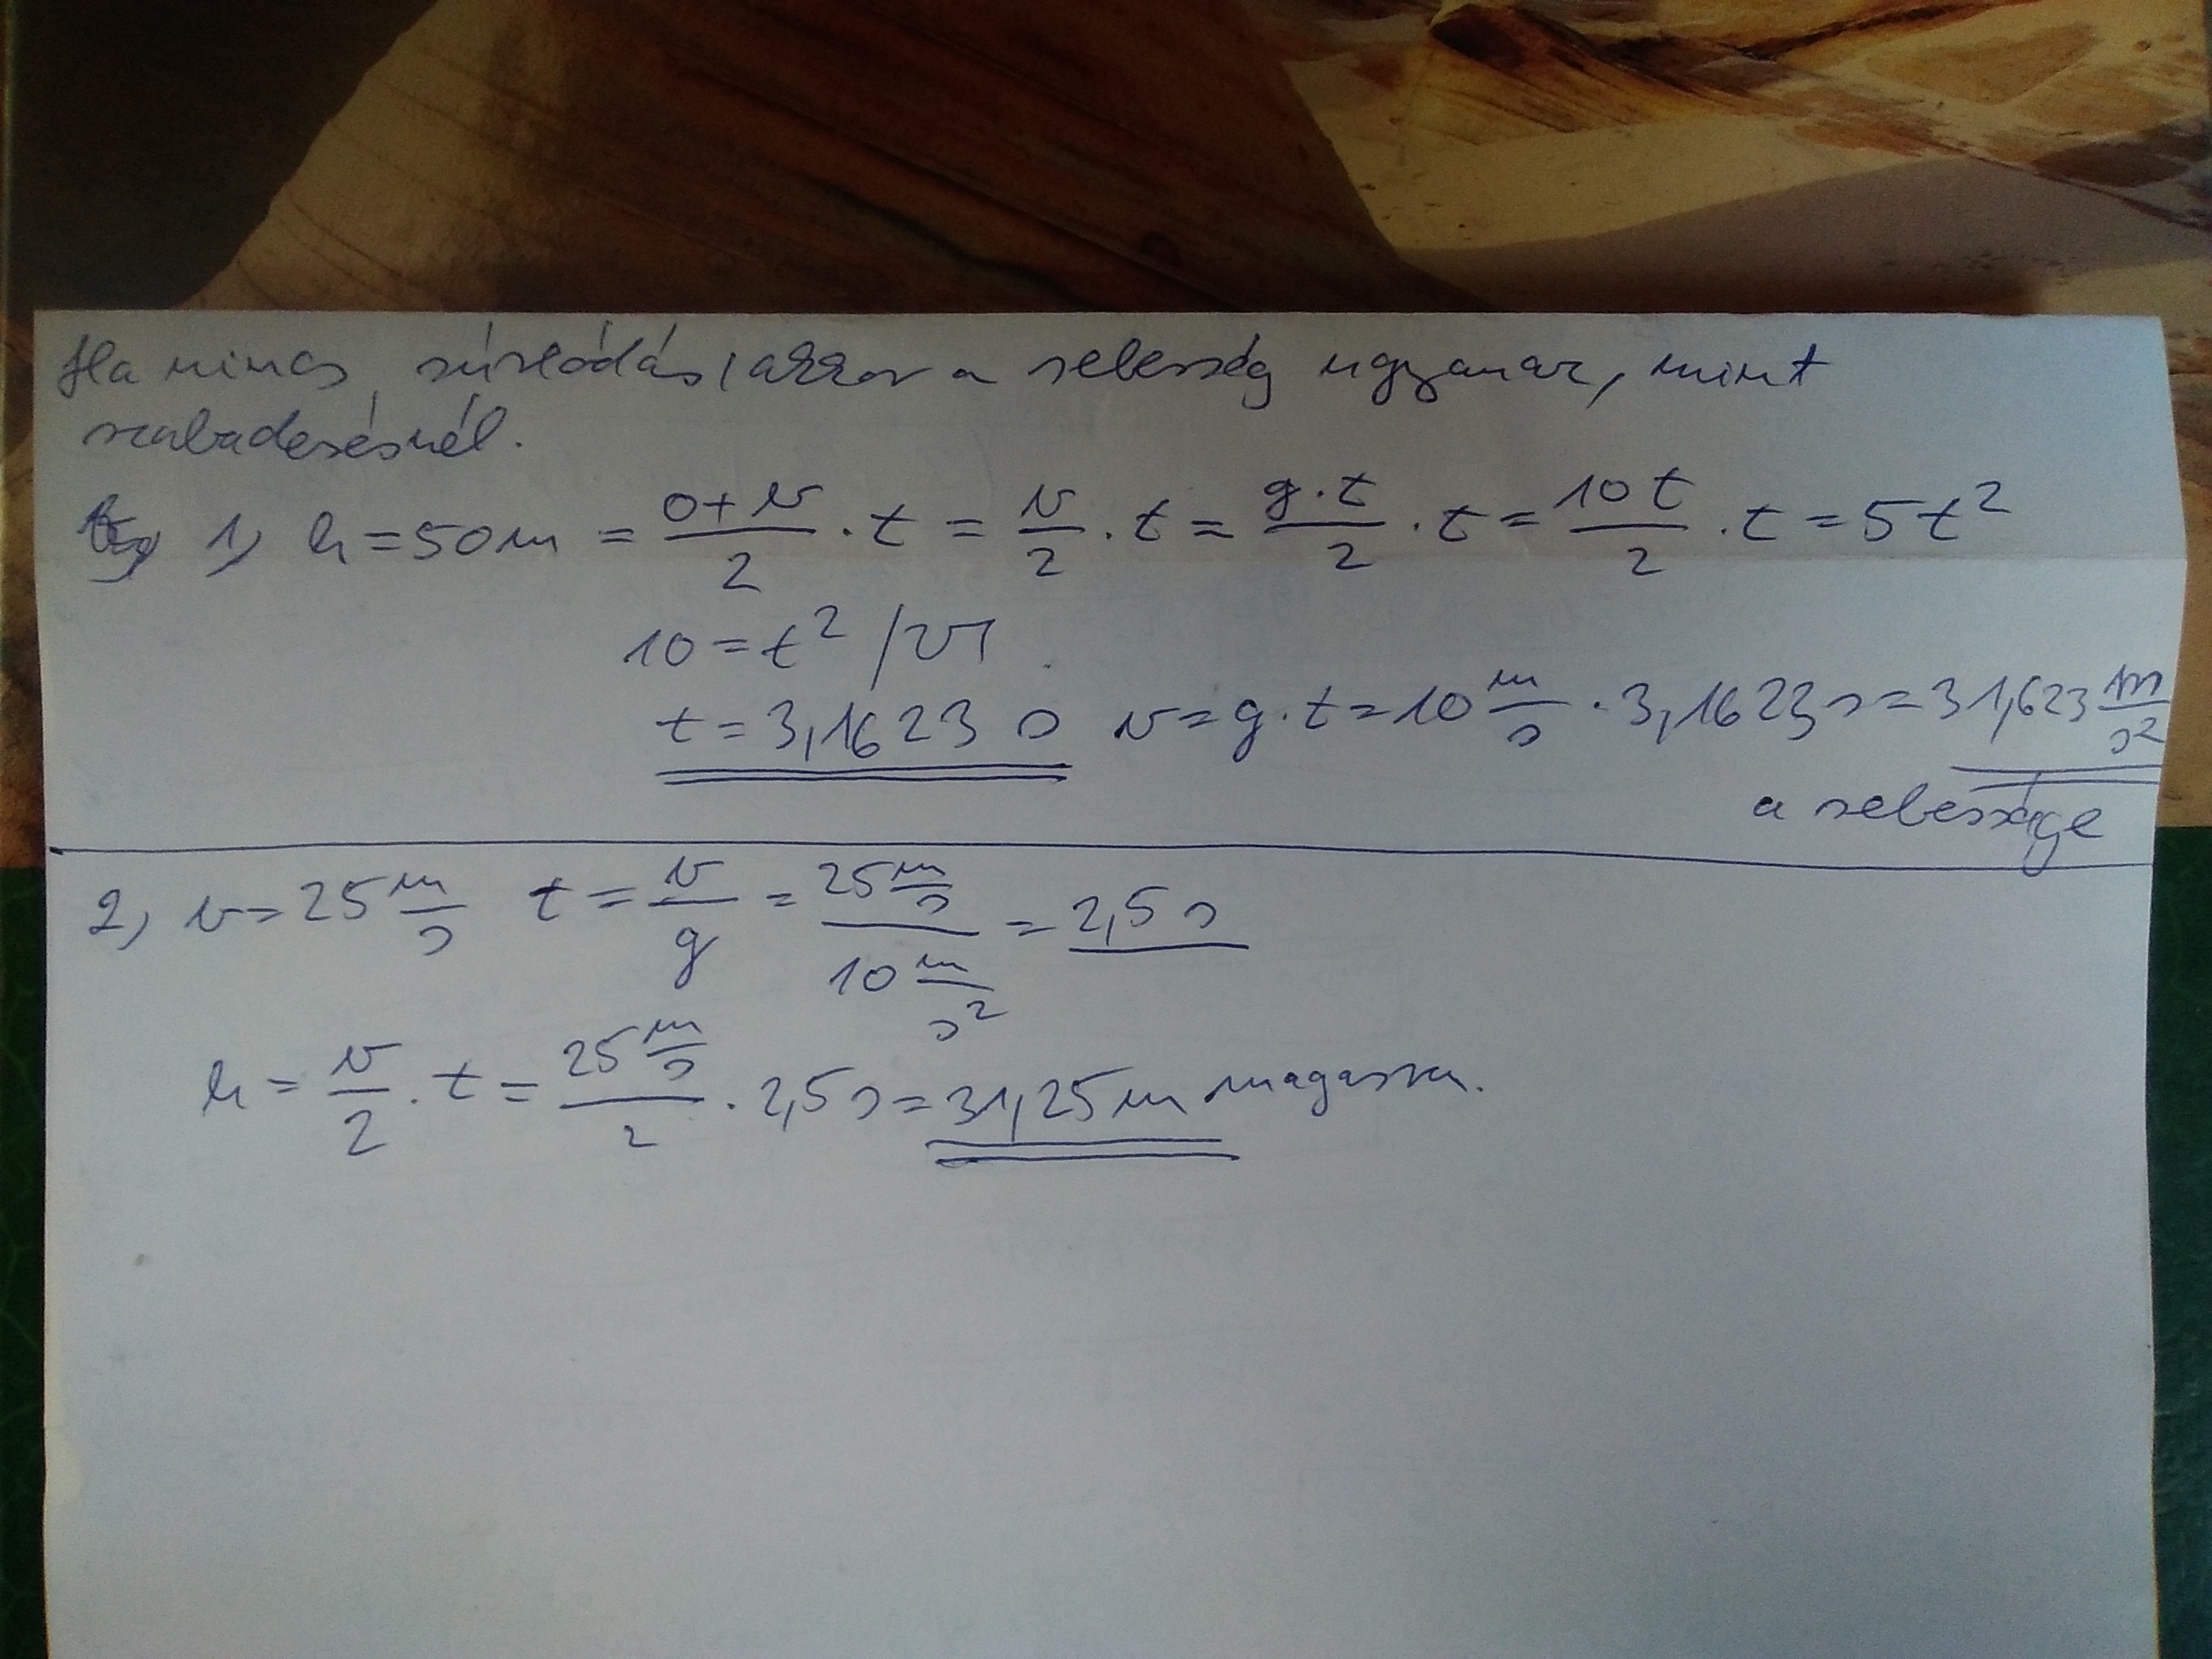 Ha nincs súrlódás, akkor a sebesség ugyanaz, mint
szabadesésnél.
1) h = 50 m = (0+v)/2 · t = v/2 · t = (g·t)/2 · t = (10 t)/2 · t = 5t²
10 = t² /√
t = 3,1623 s v = g·t = 10 m/s · 3,1623 s = 31,623 m/s²
a sebessége
2) v = 25 m/s t = v/g = (25 m/s)/(10 m/s²) = 2,5 s
h = v/2 · t = (25 m/s)/2 · 2,5 s = 31,25 m magasra.